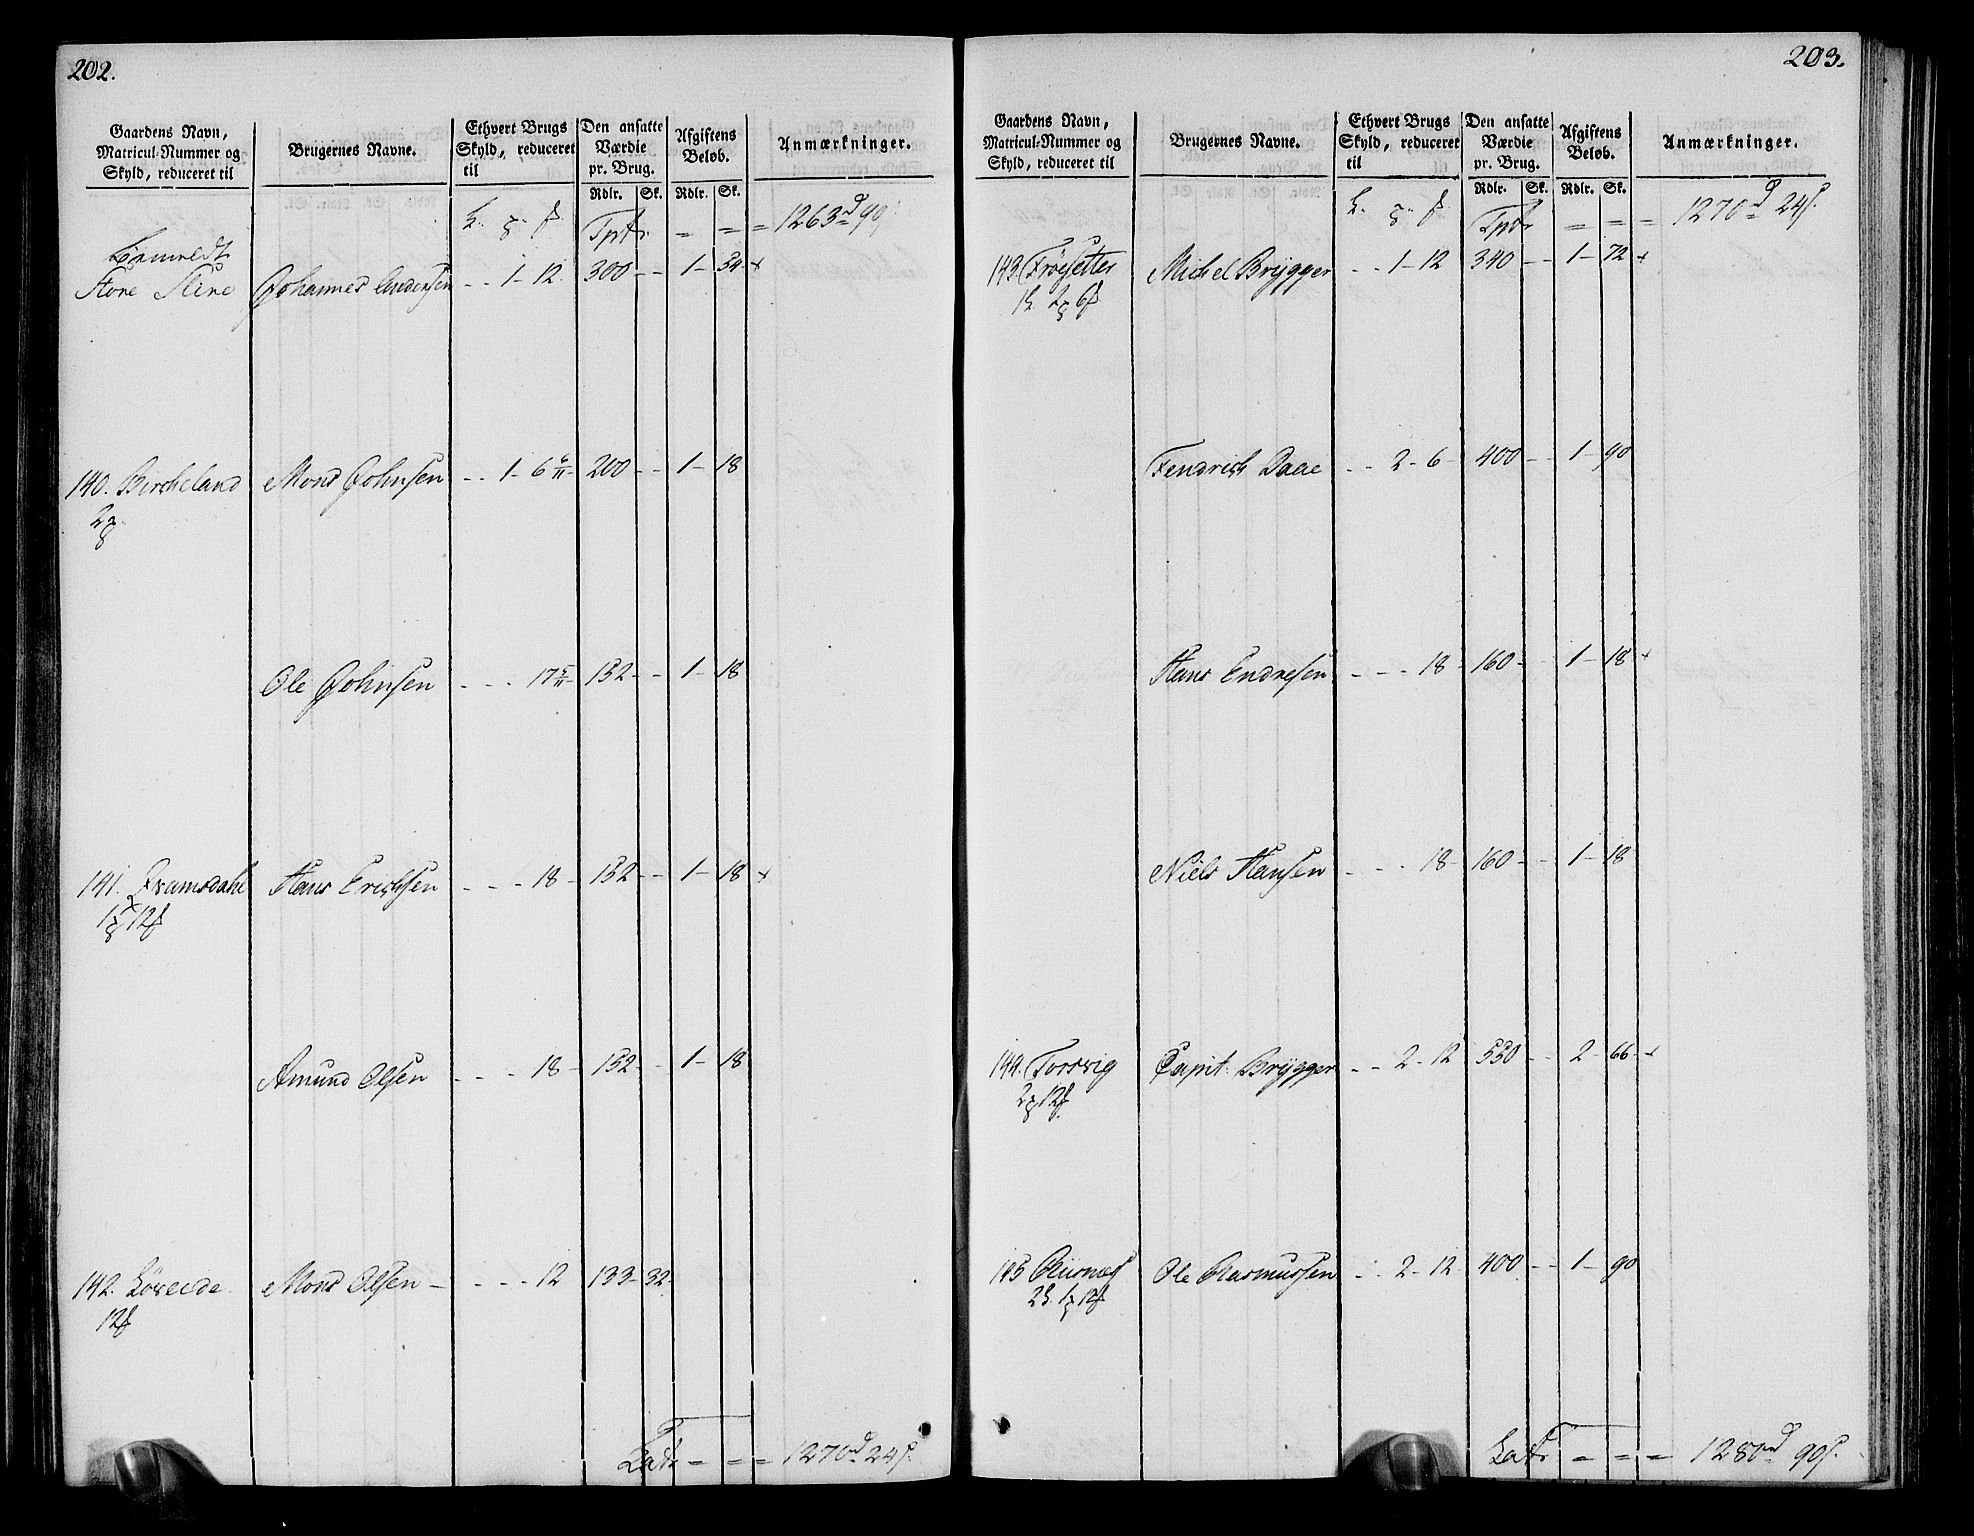 202.
Gaardens Navn, Matricul-Nummer og Skyld, reduceret til
Brugernes Navne.
Ethvert Brugs Skyld, reduceret til
Den ansatte Værdie pr. Brug.
Afgiftens Beløb.
Anmærkninger.
Rdlr. Sk. Rdlr. Sk.
Tprts = = = 1263 d 90
Store Johannes Andersen - - 1 - 12 300 - - 1 - 54 +
140. Bircheland Mons Johnsen - - 1 - 6 6/11 - 200 - - 1 - 18
2
Ole Johnsen - - - 17 5/11 - 152 - - 1 - 18
141. Framsdahl Hans Erichsen - - - 18 - 152 - - 1 - 18 +
1 12
Amund Olsen - - - 18 - 152 - - 1 - 18
142. Løveide Mons Olsen - - - - 12 133 - 32
12
Latr = = = 1270 d 24 s.
203.
Gaardens Navn, Matricul-Nummer og Skyld, reduceret til
Brugernes Navne.
Ethvert Brugs Skyld, reduceret til
Den ansatte Værdie pr. Brug.
Afgiftens Beløb.
Anmærkninger.
Rdlr. Sk. Rdlr. Sk.
Tprts = = = 1270 d 24 s.
143. Frøesetter Michel Brÿgger - - 1 - 12 340 - - 1 - 72 +
1 2 6
Fendrich Daae - - 2 - 6 400 - - 1 - 90
Hans Endresen - - - 18 - 160 - - 1 - 18 +
Niels Hansen - - - 18 - 160 - - 1 - 18
144. Torsvig Capit: Brÿgger - - 2 - 12 550 - - 2 - 66 - +
2 12
145 Riisnes Ole Rasmussen - - 2 - 12 400 - - 1 - 90
2 1 12
Latr = = = 1280 d 90 s.